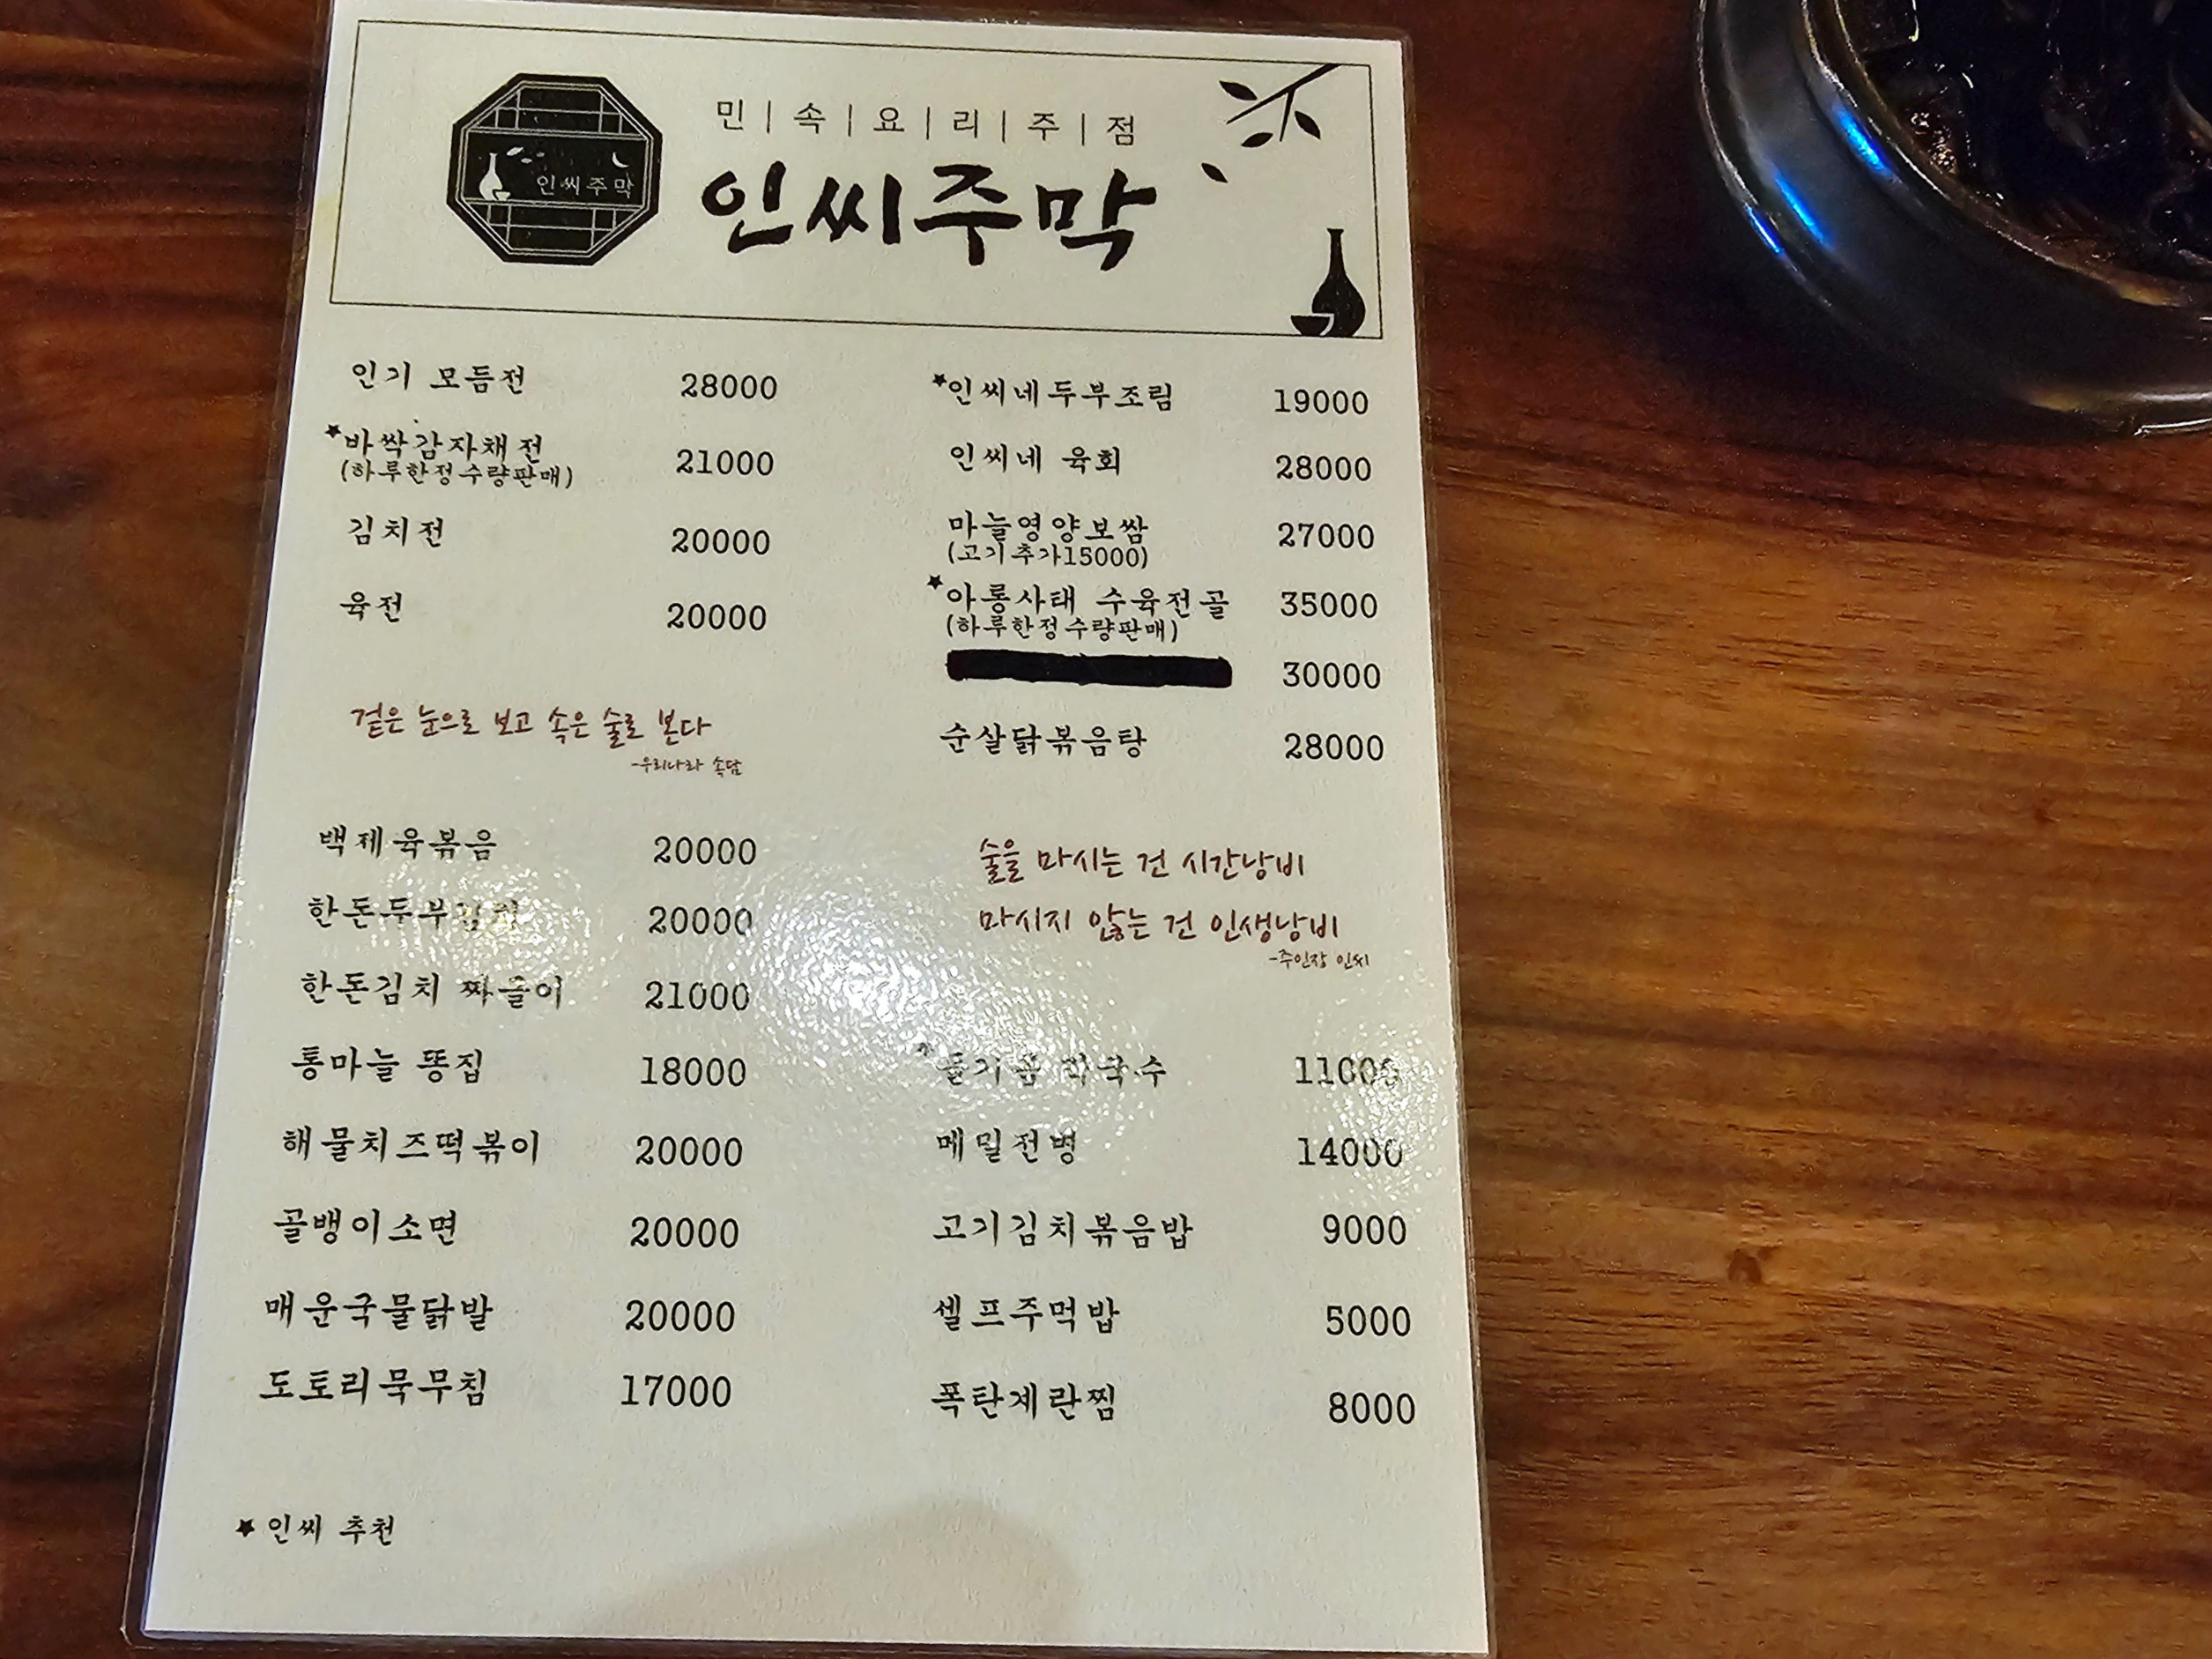 민|속|요|리|주|점
인씨주막
인씨주막
인기 모듬전 28000
★바싹감자채전 21000
(하루한정수량판매)
김치전 20000
육전 20000
겉은 눈으로 보고 속은 술로 본다
-우리나라 속담
백제육볶음 20000
한돈두부 20000
한돈김치 짜글이 21000
통마늘 똥집 18000
해물치즈떡볶이 20000
골뱅이소면 20000
매운국물닭발 20000
도토리묵무침 17000
★인씨네두부조림 19000
인씨네 육회 28000
마늘영양보쌈 27000
(고기추가15000)
★아롱사태 수육전골 35000
(하루한정수량판매)
30000
순살닭볶음탕 28000
술을 마시는 건 시간낭비
마시지 않는 건 인생낭비
-주인장 인씨
11000
메밀전병 14000
고기김치볶음밥 9000
셀프주먹밥 5000
폭탄계란찜 8000
★ 인씨 추천